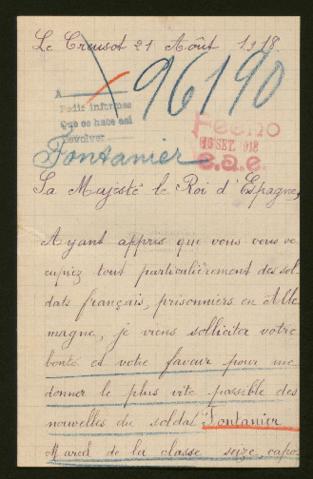 Le Creusot 21 Août 1918.
A
96190
Pedir informes
Que se hace así
Devolver
Fecho
16 SET. 1918
e.a.e.
Fontanier
Sa Majesté le Roi d'Espagne,
Ayant appris que vous vous oc
cupiez tout particulièrement des sol
dats français, prisonniers en Alle
magne, je viens solliciter votre
bonté et votre faveur pour me
donner le plus vite possible des
nouvelles du soldat Fontanier
Marcel de la classe seize, capo